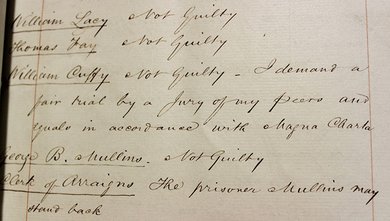 William Lacy Not Guilty
Thomas Fay Not Guilty
William Cuffy Not Guilty - I demand a
fair trial by a Jury of my Peers and
equals in accordance with Magna Charta
George B. Mullins. Not Guilty
Clerk of Arraigns The prisoner Mullins may
stand back